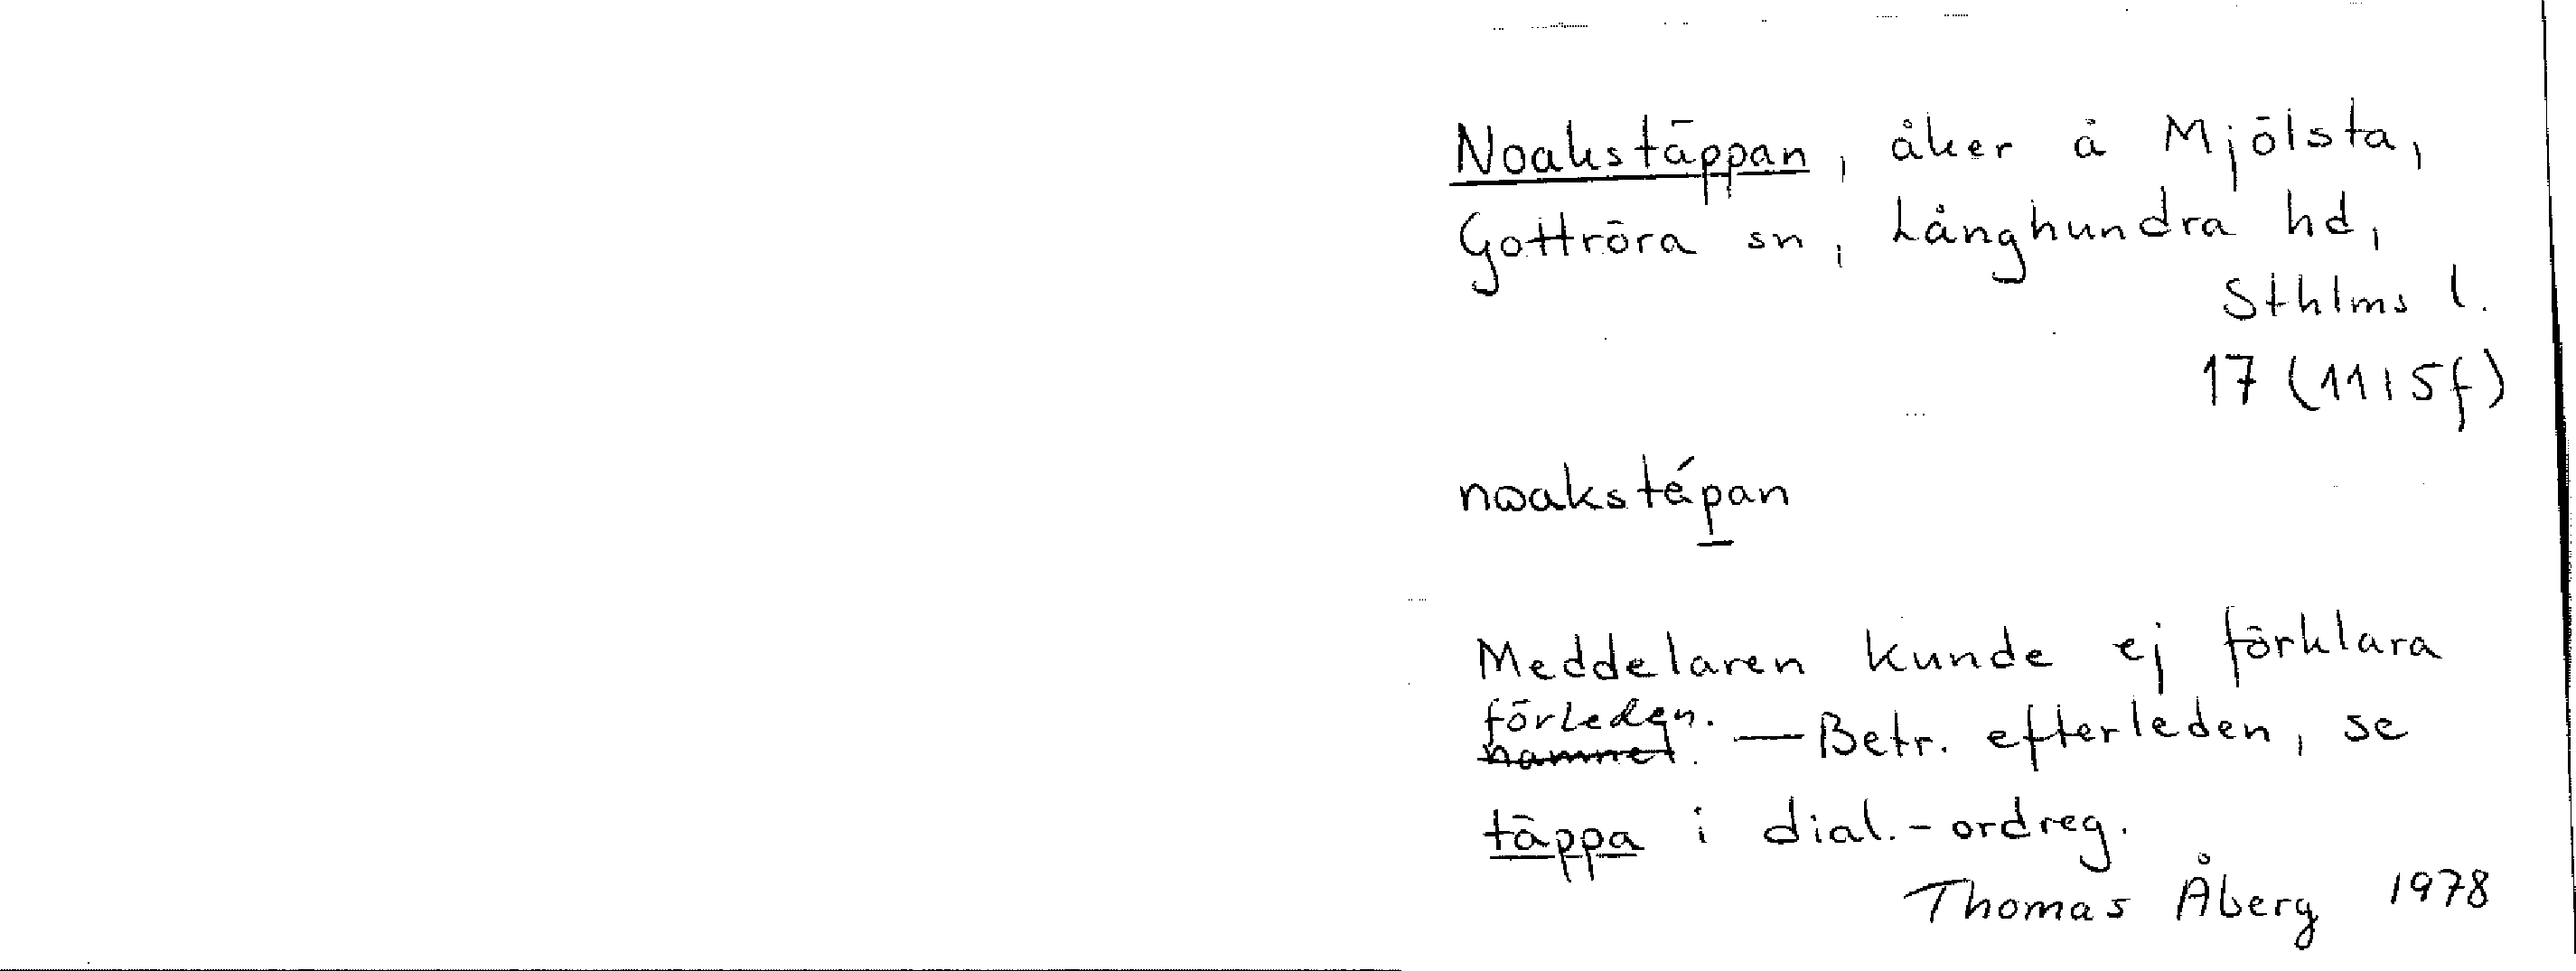 Noakstäppan, åker å Mjölsta,
Gottröra sn, Långhundra hd,
Sthlms l.
17 (11i5f)
nωakstépan
Meddelaren kunde ej förklara
förleden.
namnet. — Betr. efterleden, se
täppa i dial.-ordreg.
Thomas Åberg 1978